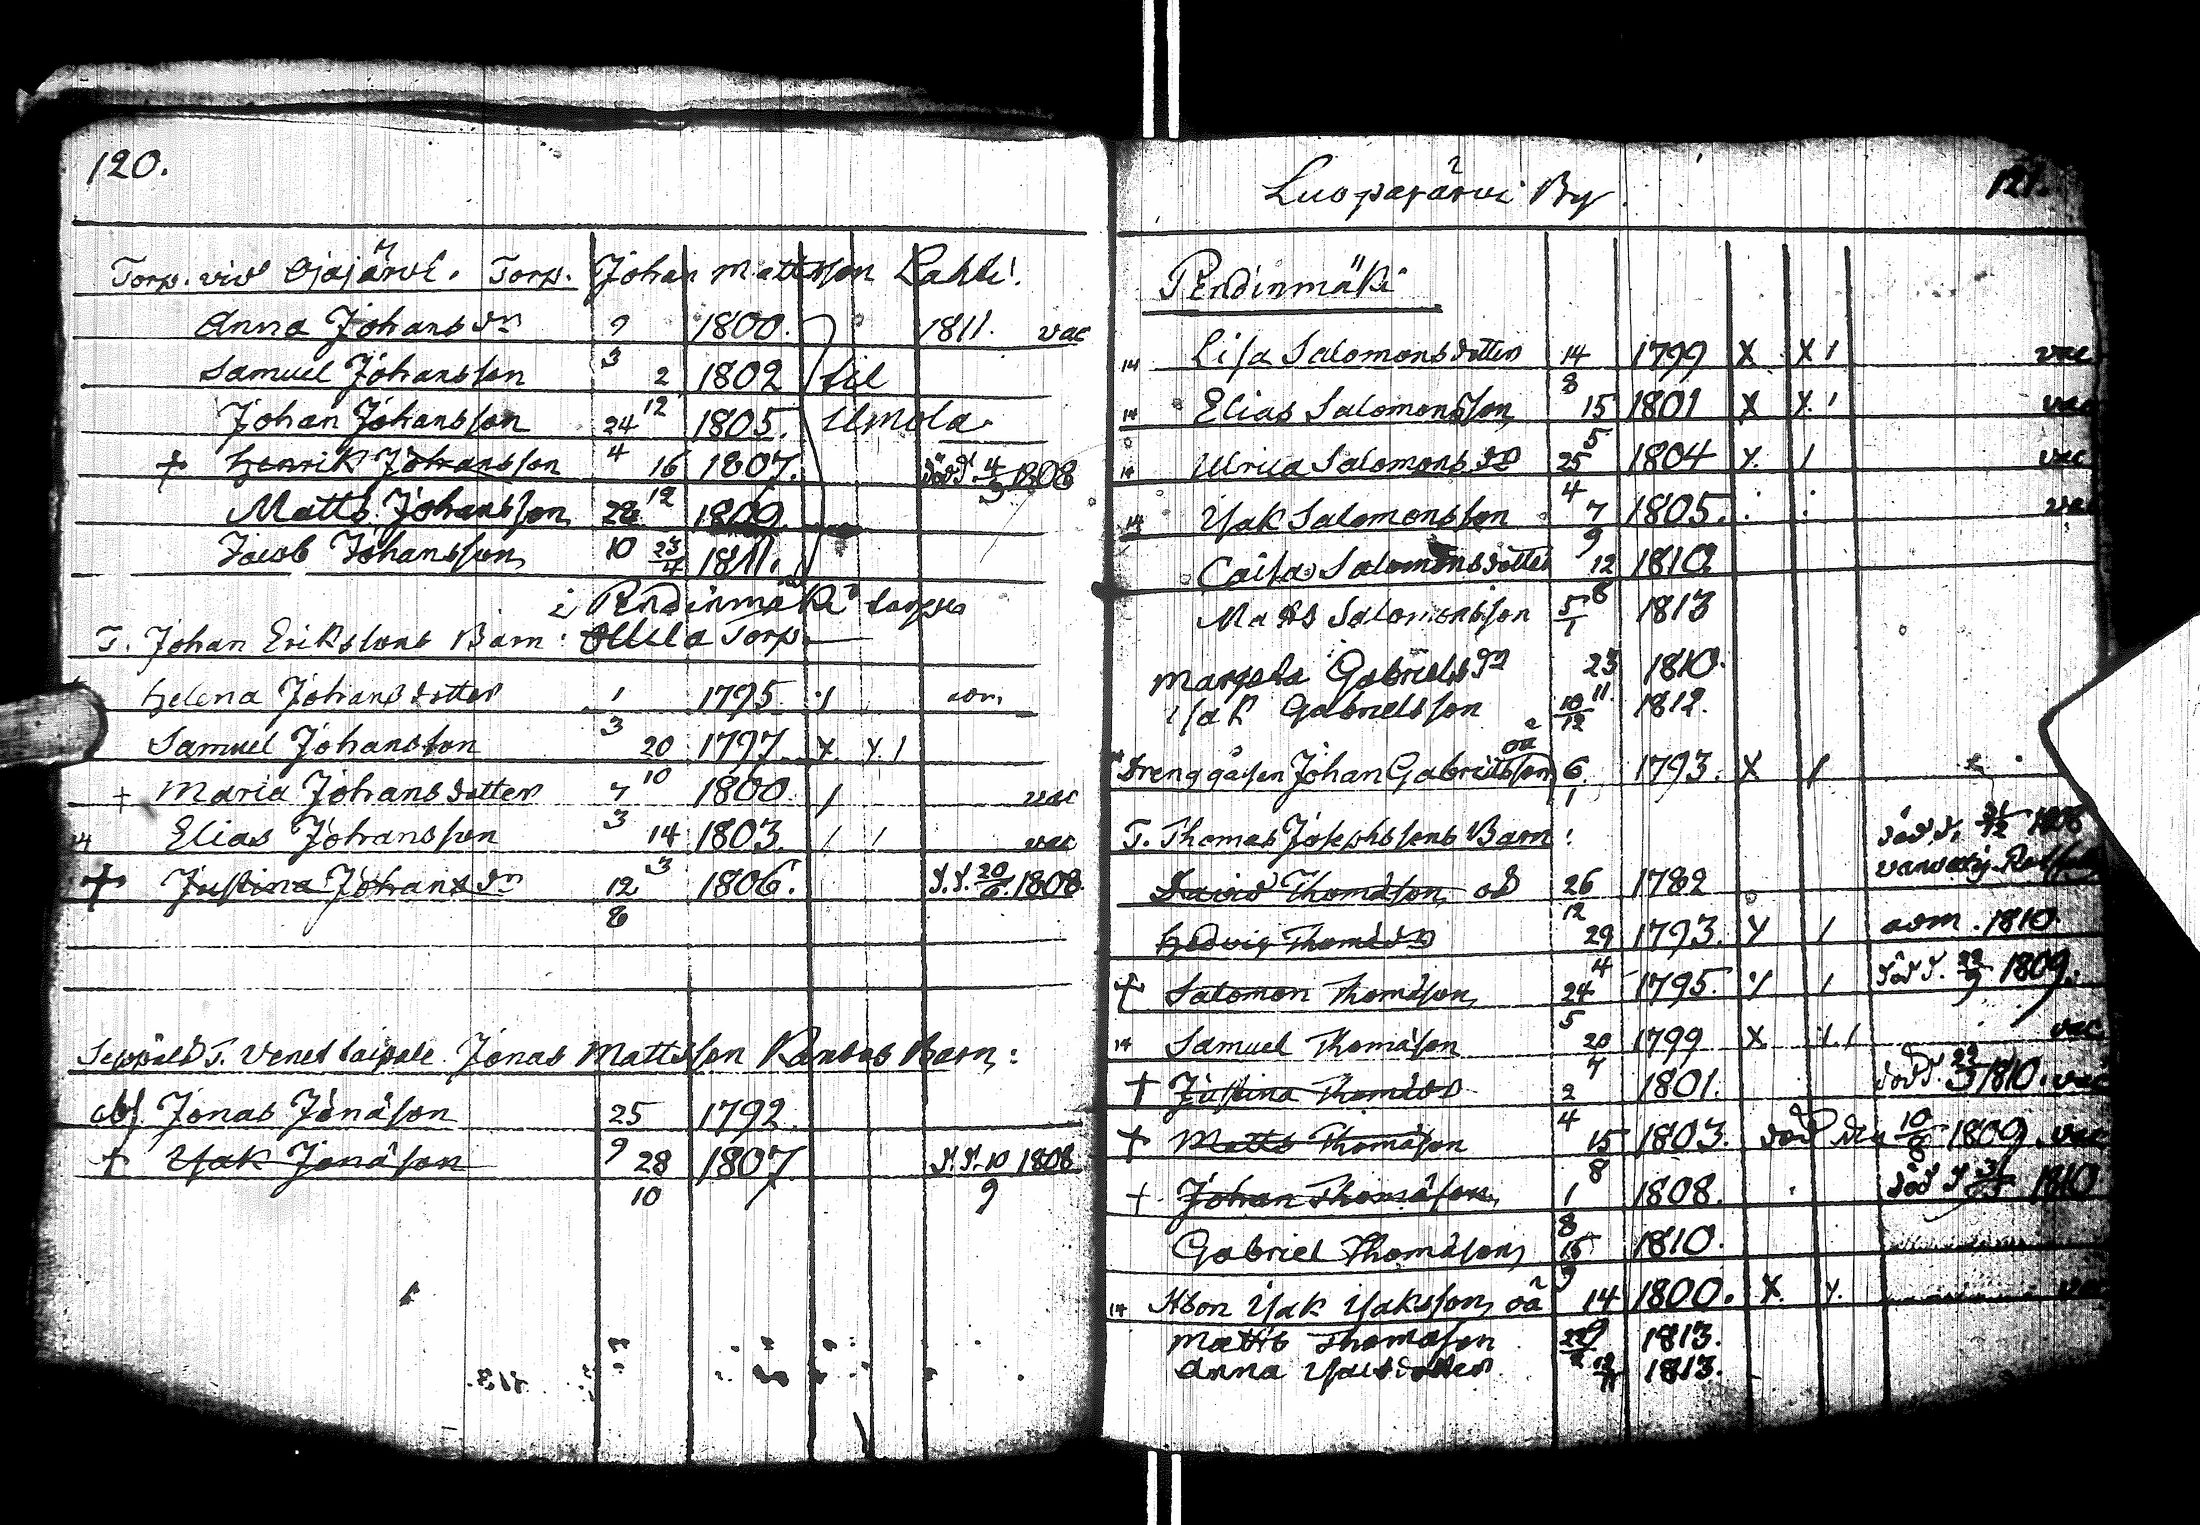 120.
Torp. vid Ojajärvi. Torp. Johan Mattsson Lahti.
Anna Johansdr 9 1800. 1811. vac
3
Samuel Johansson 2 1802 til
12
Johan Johansson 24 1805. Ilmola
4
+ Henrik Johansson 16 1807. död d. 4/3 1808
12
Matts Johansson 28 1809
10
Jacob Johansson 23/4 1811.
i Pendinmäki torp
T. Johan Erikssons Barn: Ollila Torp.
Helena Johansdotter 1 1795 /
3
Samuel Johansson 20 1797 x x /
10
+ Maria Johansdotter 7 1800 / vac
3
14 Elias Johansson 14 1803. / / vac
3
+ Justina Johansdr 12 1806. d.d. 20/6 1808
8
Seppälä T. Jonas Mattsson Barn:
abs. Jonas Jonäson 25 1792
9
+ Isak Jonäson 28 1807 d.d. 10 1808
10 9
Luopajärvi By. 121.
Pendinmäki
14 Lisa Salomonsdotter 14 1799 x x / vac
8
14 Elias Salomonsson 15 1801 x x / vac
5
14 Ulrica Salomonsdr 25 1804 x / vac
4
14 Isak Salomonsson 7 1805. vac
9
Caisa Salomonsdotter 12 1810
8
Matts Salomonsson 5/1 1813
Margeta Gabrielsdr 23 1810.
11
Isak Gabrielsson 10/12 1812.
oä
Drenggåsen Johan Gabrielsson 6. 1793. x /
1
T. Thomas Josephssons Barn:
död d. 31/12 1808
David Thomäson 26 1782
12
Hedvig Thomädr 29 1793. x / adm. 1810.
4
+ Salomon Thomäson 24 1795. x / död d. 22/9 1809.
5
14 Samuel Thomäson 20 1799 x x / vac
7
+ Justina Thomädr 2 1801. död d. 22/5 1810. vac
4
+ Matts Thomäson 15 1803. död den 10/8 1809. vac
8
+ Johan Thomäson 1 1808. död d 1810
8
Gabriel Thomäson 15 1810.
3
14 Isak Isaksson oä 14 1800. x x
9
Matts Thomason 22/2 1813.
Anna Isaksdotter 12/11 1813.